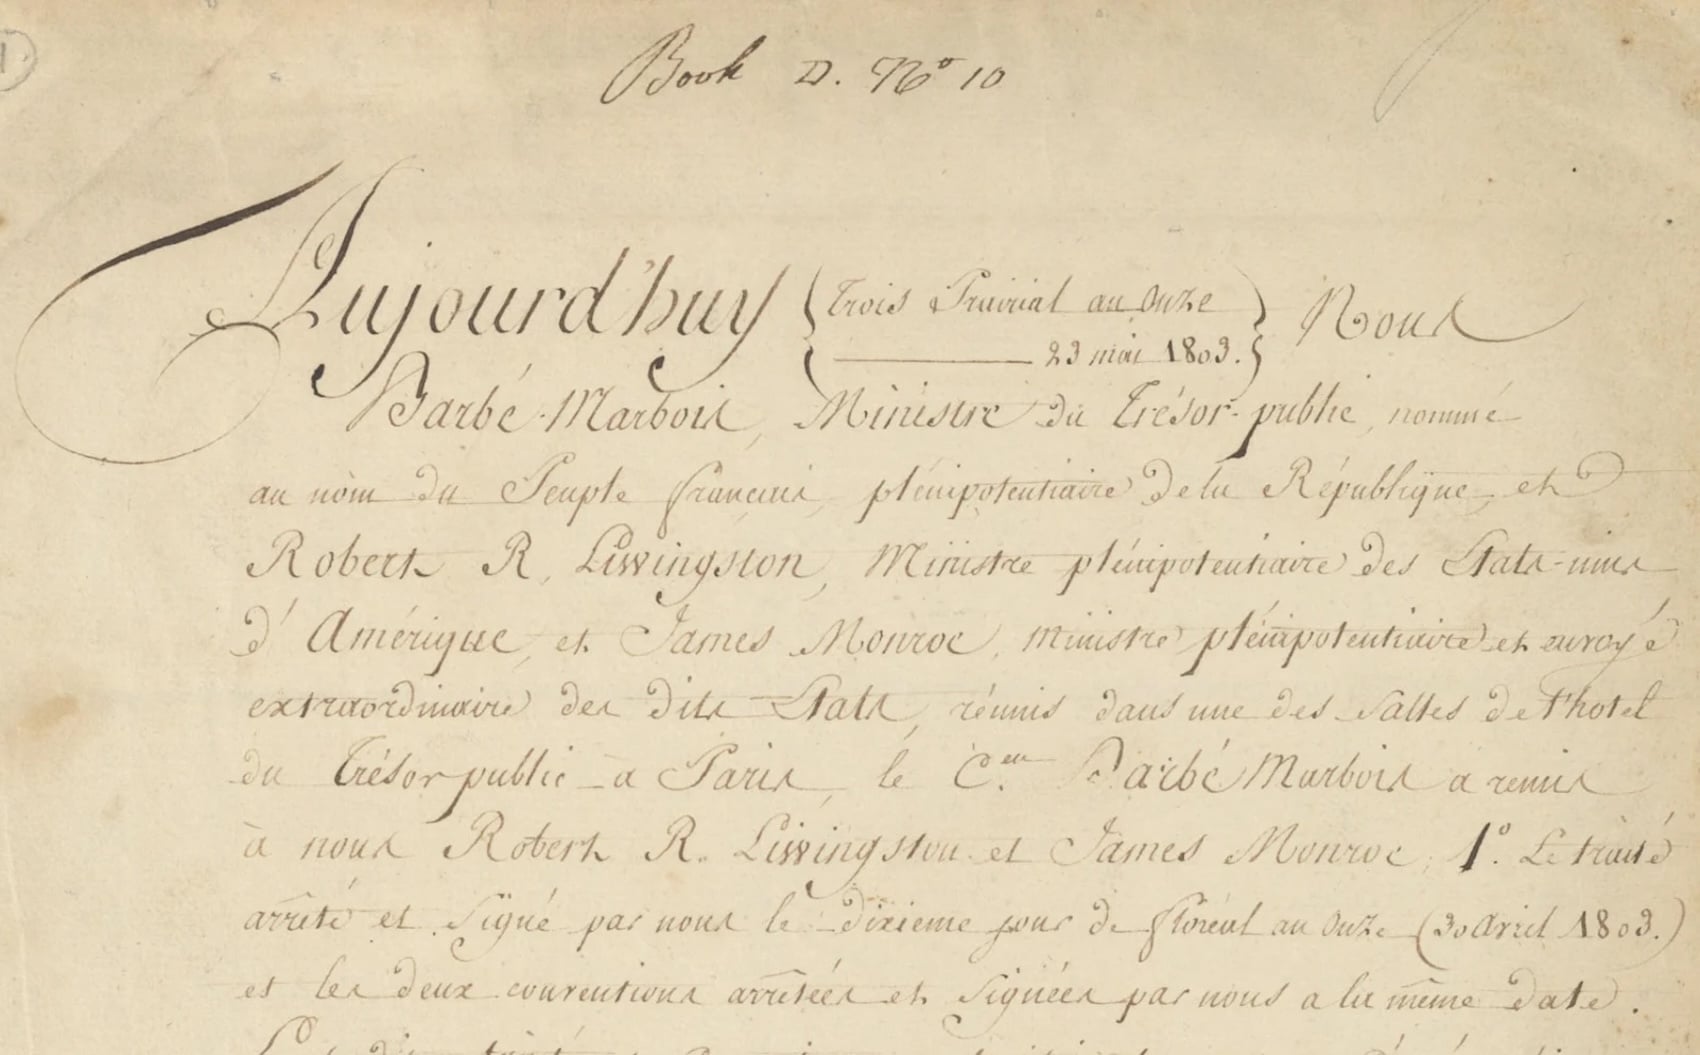 1
Book D. No 10
Aujourd'huy { trois Prairial an Onze } Nous
{ 23 mai 1803. }
Barbé-Marbois, Ministre du Trésor-public, nommé
au nom du Peuple français, plénipotentiaire de la République, et
Robert R. Liwingston, Ministre plénipotentiaire des Etats-unis
d'Amérique, et James Monroe, ministre plénipotentiaire et envoyé
extraordinaire des dits Etats, réunis dans une des salles de l'hotel
du Trésor public à Paris, le C.en Barbé Marbois a remis
à nous Robert R. Liwingston et James Monroe, 1o. Le traité
arrêté et signé par nous le dixieme jour de floréal an Onze (30 Avril 1803.)
et les deux conventions arrêtées et signées par nous a la même date.